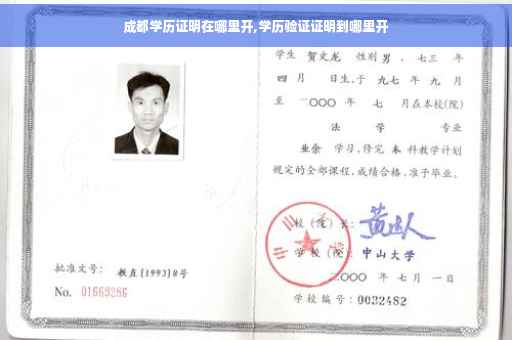 成都学历证明在哪里开,学历验证证明到哪里开
学生 贺文龙 性别 男 、七三 年
四 月 日生,于 九七 年 九 月
至 二〇〇〇 年 七 月在本校(院)
法 学 专业
业余 学习,修完 本 科教学计划
规定的全部课程,成绩合格,准予毕业。
校(院)长:
学校(院): 中山大学
二〇〇〇 年 七 月 一 日
学校编号: 0032482
批准文号: 教直[1993]8号
No. 01669286